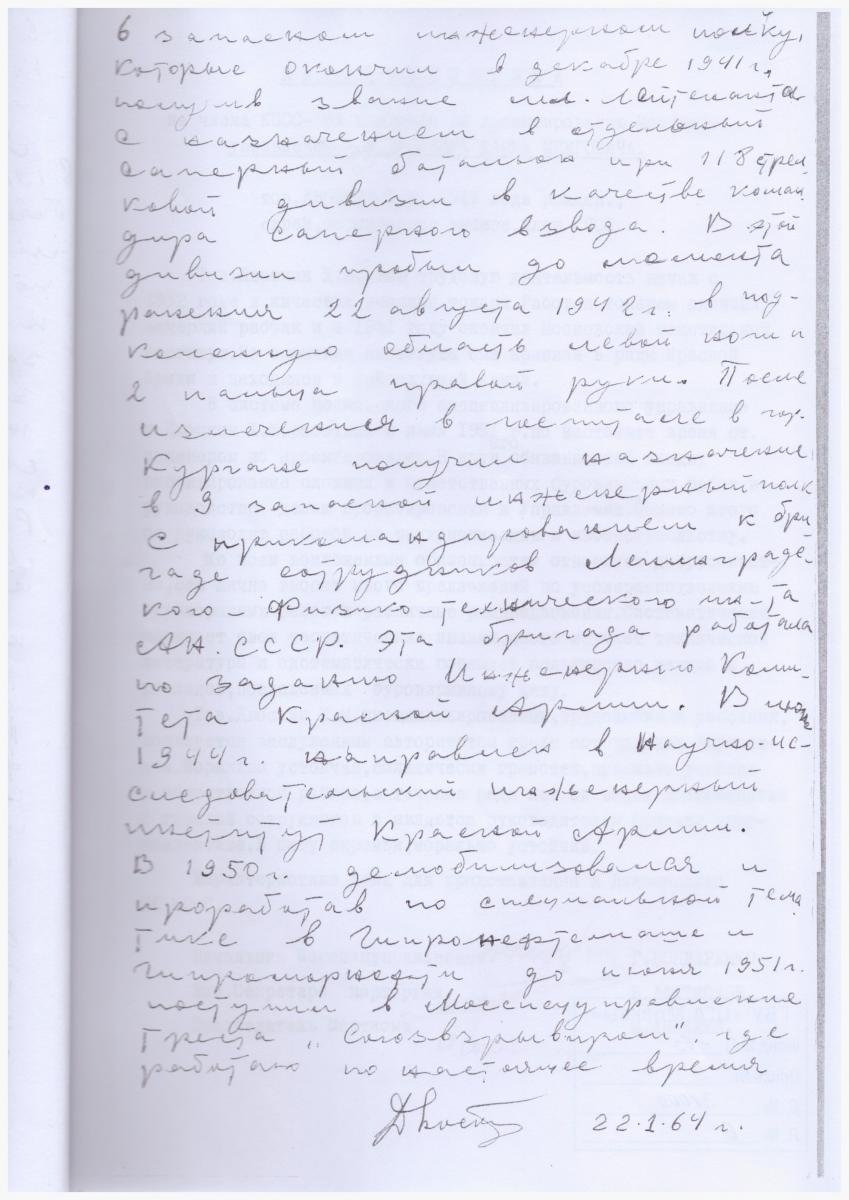 6 запасном инженерном полку,
которые окончил в декабре 1941 г,
получив звание мл. Лейтенанта
с назначением в отдельный
саперный батальон при 118 стрел
ковой дивизии в качестве коман
дира саперного взвода. В этой
дивизии пробыл до момента
ранения 22 августа 1942 г. в под-
коленную область левой ноги и
2 пальца правой руки. После
излечения в госпитале в гор.
Кургане получил назначение
в 9 запасной инженерный полк
с прикомандированием к бри
гаде сотрудников Ленинградс-
кого - Физико-технического ин-та
АН. СССР. Эта бригада работала
по заданию Инженерного Коми-
тета Красной Армии. В июне
1944 г. направлен в Научно-ис-
следовательский инженерный
институт Красной Армии.
В 1950 г. демобилизовался и
проработав по специальной тема
тике в Гипронефтемаше и
Гипроморнефти до июня 1951 г.
поступил в Мосспецуправление
треста „Союзвзрывпром", где
работаю по настоящее время
22.1.64 г.